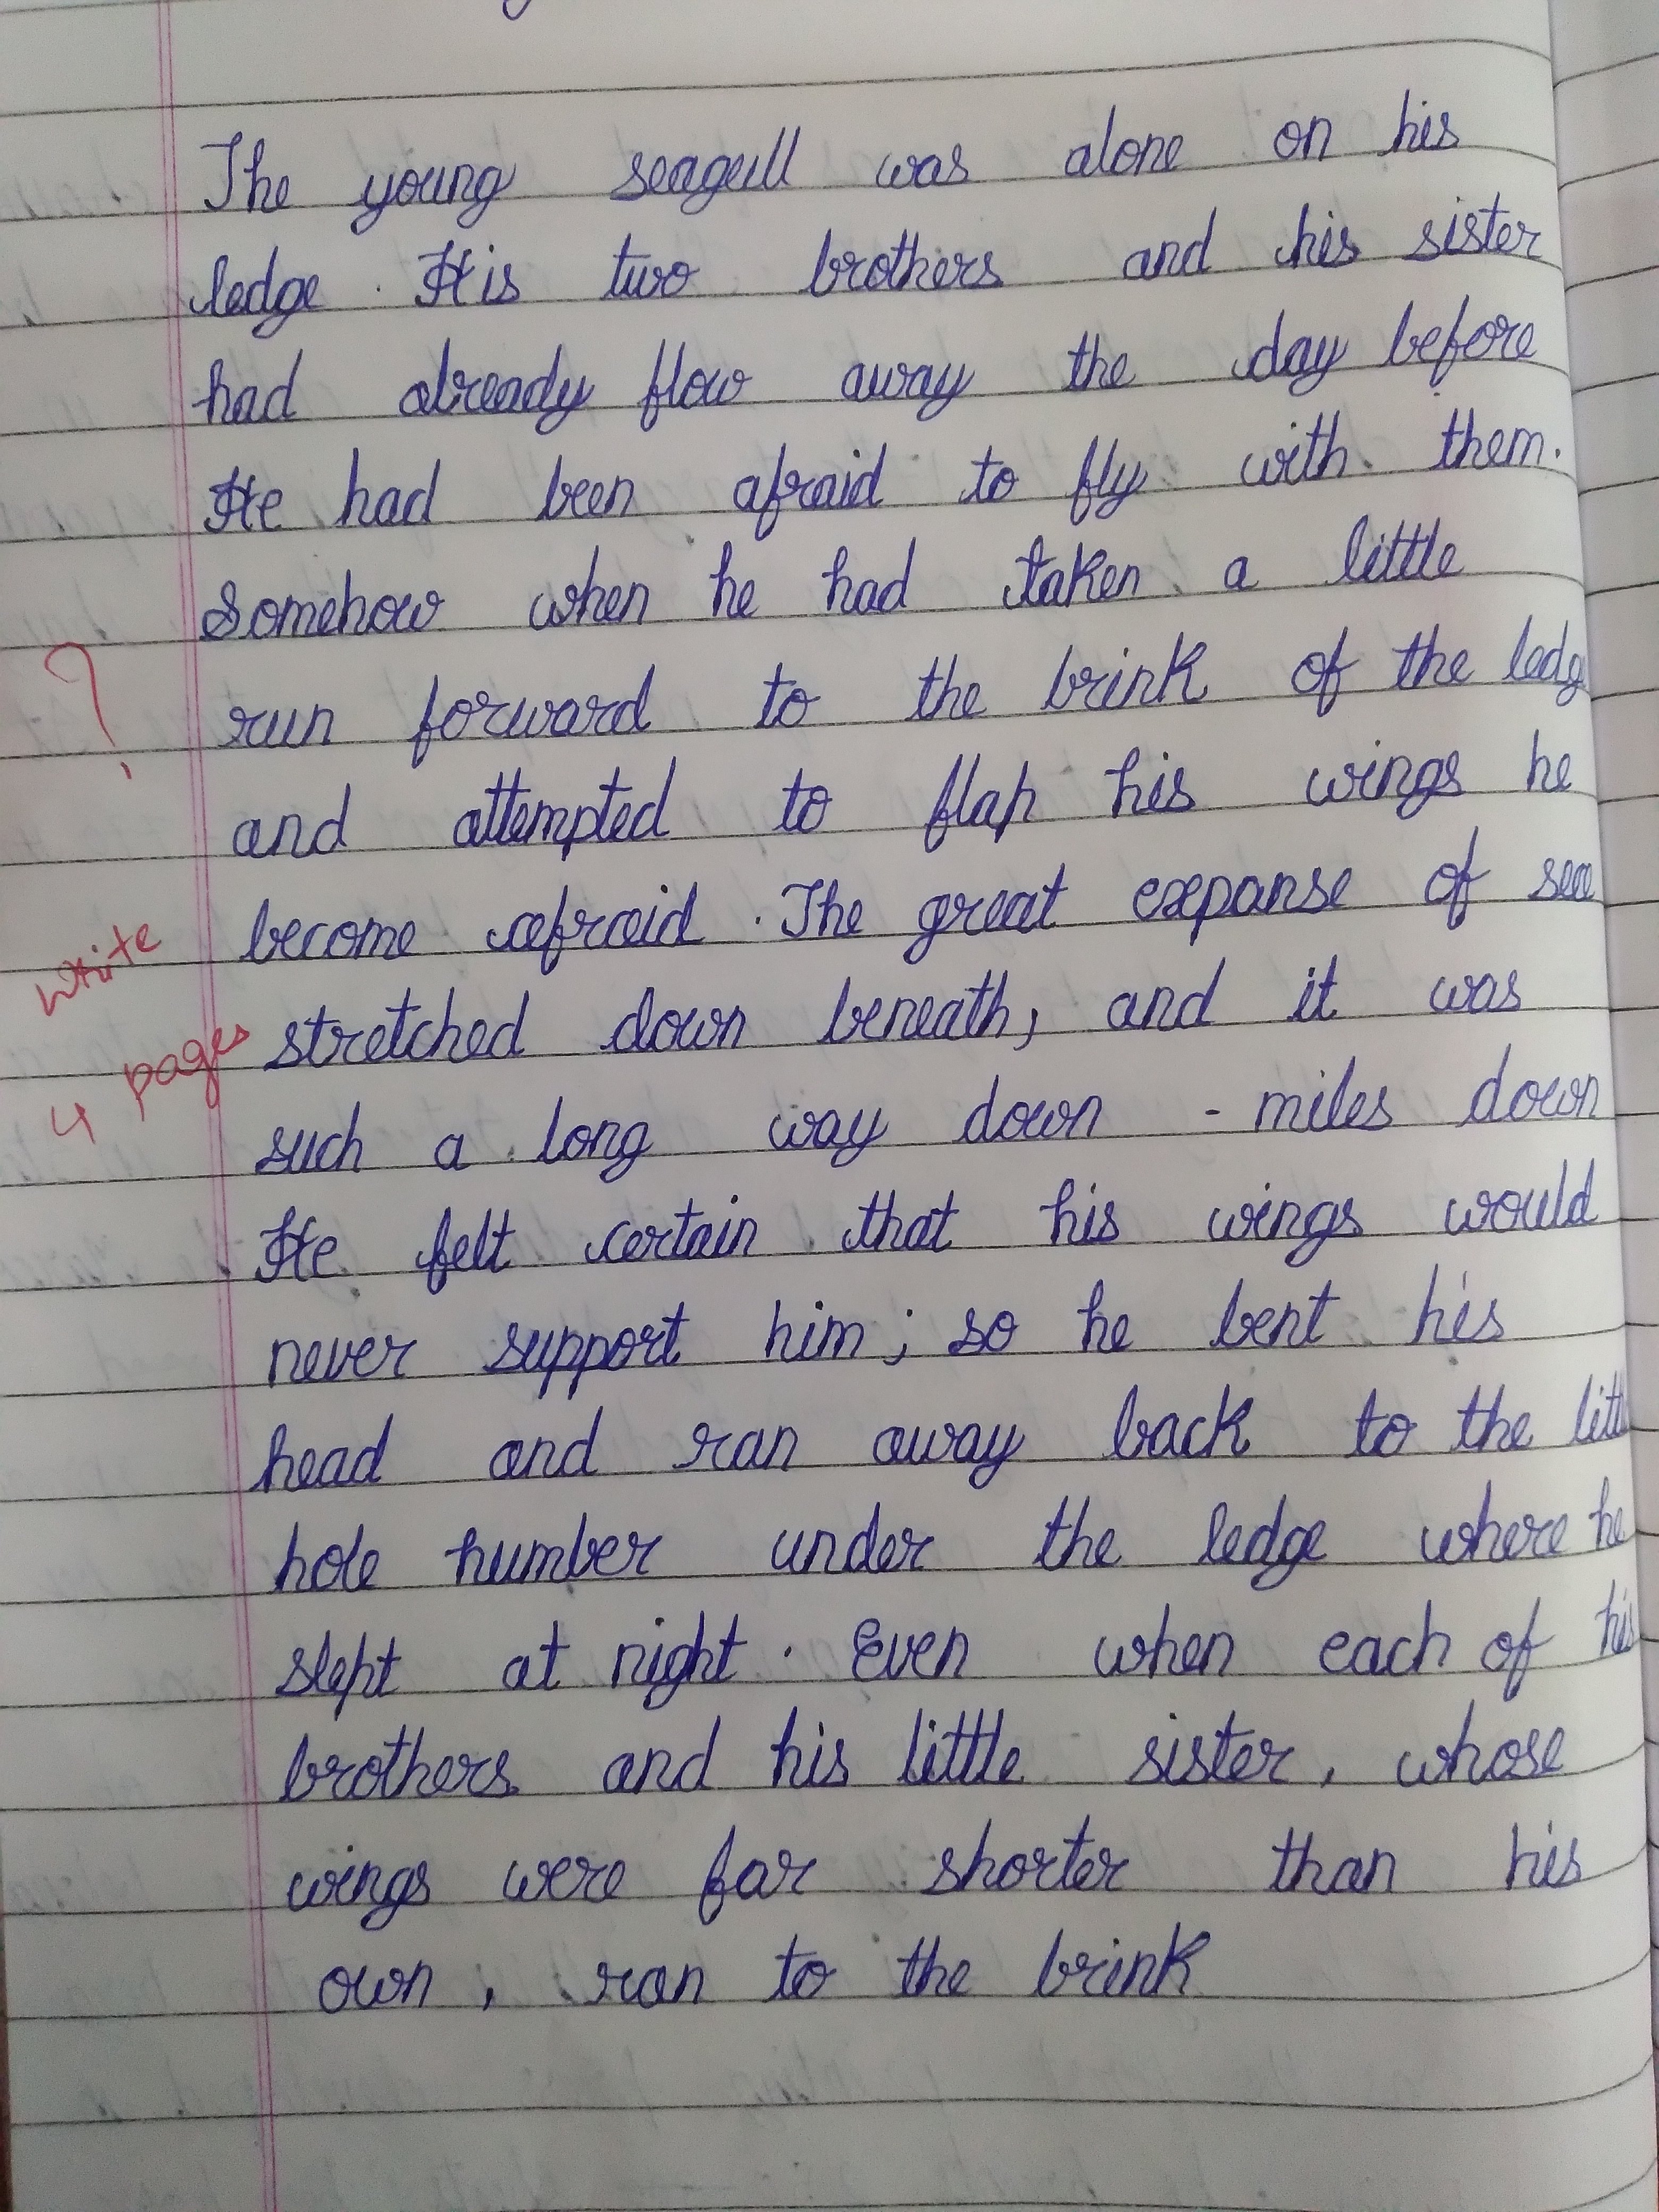 The young seagull was alone on his
ledge. His two brothers and his sister
had already flow away the day before
He had been afraid to fly with them.
Somehow when he had taken a little
run forward to the brink of the ledg
?
and attempted to flap his wings he
become afraid. The great expanse of sea
write
stretched down beneath, and it was
4 pages
such a long way down - miles down
He felt certain that his wings would
never support him; so he bent his
head and ran away back to the litt
hole humber under the ledge where he
slept at night. Even when each of his
brothers and his little sister, whose
wings were far shorter than his
own, ran to the brink